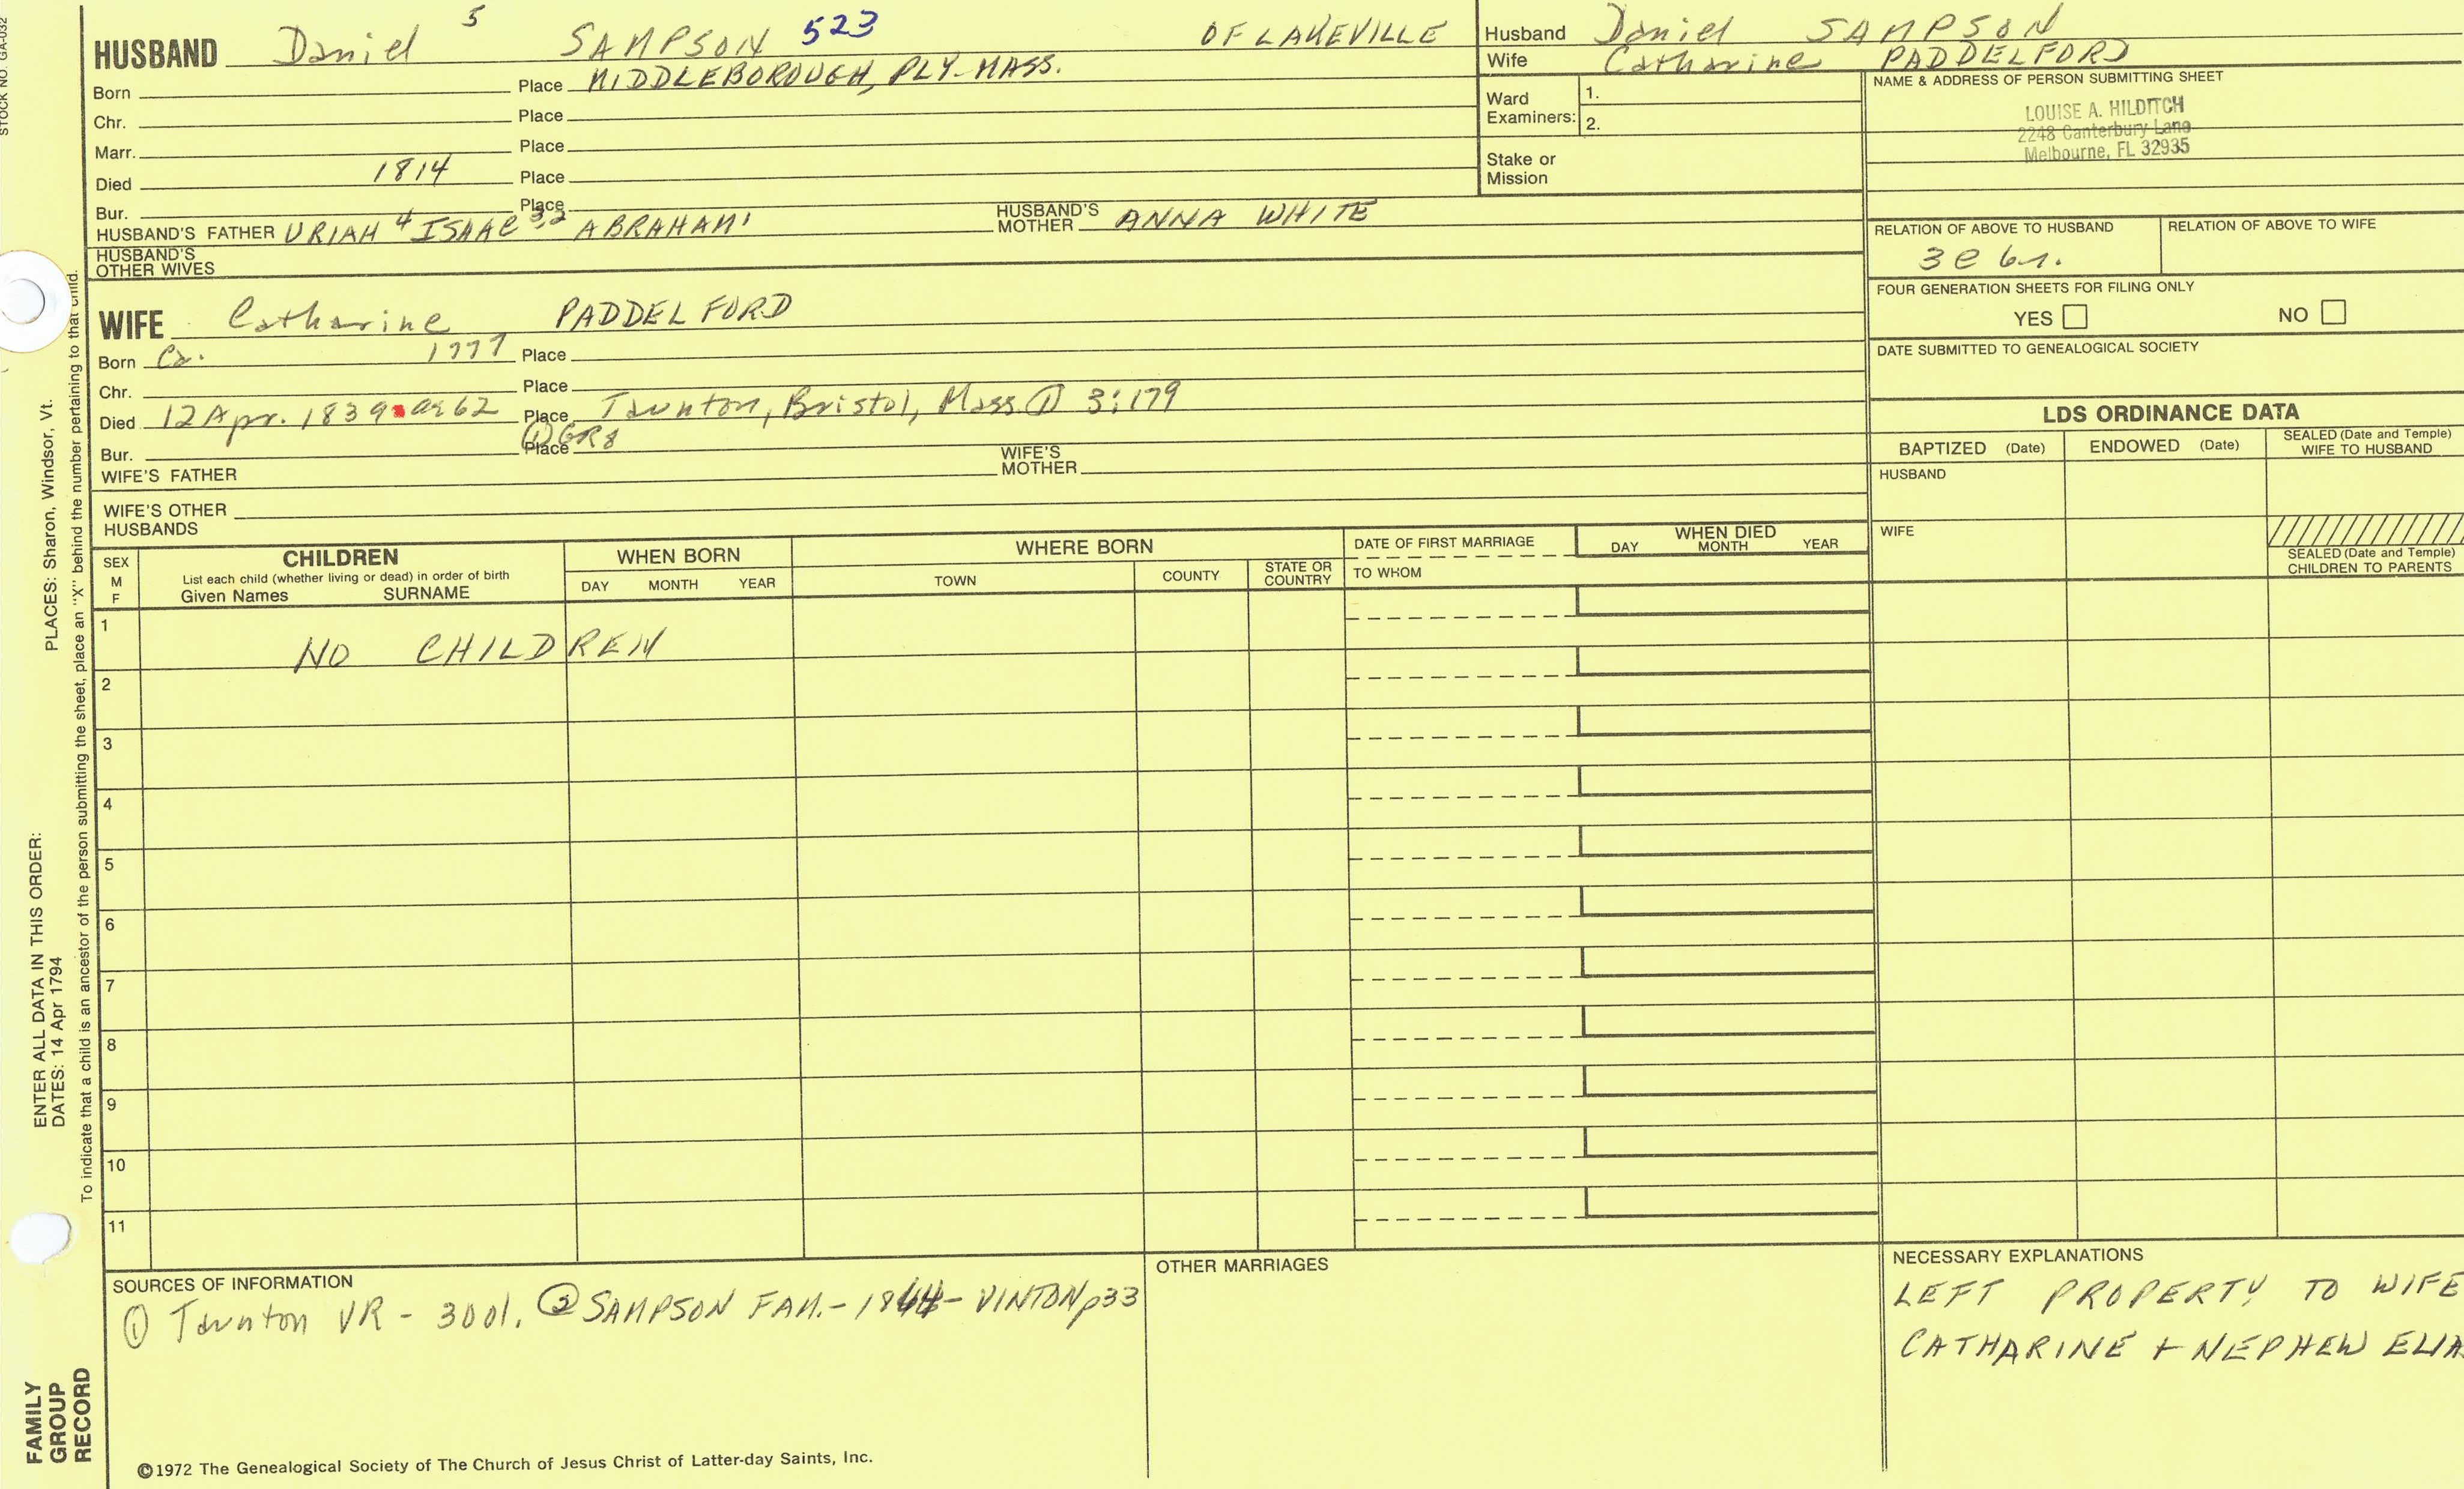 STOCK NO. GA-032
PLACES: Sharon, Windsor, Vt.
ENTER ALL DATA IN THIS ORDER:
DATES: 14 Apr 1794
To indicate that a child is an ancestor of the person submitting the sheet, place an "X" behind the number pertaining to that child.
FAMILY
GROUP
RECORD
HUSBAND Daniel 5 SAMPSON 523 OF LAKEVILLE
Born Place MIDDLEBOROUGH, PLY-MASS.
Chr. Place
Marr. Place
Died 1814 Place
Bur. Place
HUSBAND'S FATHER URIAH 4 ISAAC 3,2 ABRAHAM 1 HUSBAND'S MOTHER ANNA WHITE
HUSBAND'S
OTHER WIVES
WIFE Catharine PADDELFORD
Born Ca. 1777 Place
Chr. Place
Died 12 Apr. 1839 ae 62 Place Taunton, Bristol, Mass ① 3:179
① GR8
Bur. Place
WIFE'S FATHER WIFE'S MOTHER
WIFE'S OTHER
HUSBANDS
Husband Daniel SAMPSON
Wife Catharine PADDELFORD
Ward
Examiners: 1.
2.
Stake or
Mission
NAME & ADDRESS OF PERSON SUBMITTING SHEET
LOUISE A. HILDITCH
2248 Canterbury Lane
Melbourne, FL 32935
RELATION OF ABOVE TO HUSBAND RELATION OF ABOVE TO WIFE
FOUR GENERATION SHEETS FOR FILING ONLY
YES NO
DATE SUBMITTED TO GENEALOGICAL SOCIETY
LDS ORDINANCE DATA
BAPTIZED (Date) ENDOWED (Date) SEALED (Date and Temple)
WIFE TO HUSBAND
HUSBAND
WIFE
SEALED (Date and Temple)
CHILDREN TO PARENTS
SEX
M
F
CHILDREN
List each child (whether living or dead) in order of birth
Given Names SURNAME
WHEN BORN
DAY MONTH YEAR
WHERE BORN
TOWN COUNTY STATE OR
COUNTRY
DATE OF FIRST MARRIAGE
TO WHOM
WHEN DIED
DAY MONTH YEAR
1
NO CHILDREN
2
3
4
5
6
7
8
9
10
11
SOURCES OF INFORMATION
① Taunton VR - 3 vol. ② SAMPSON FAM. - 1864 - VINTON p33
OTHER MARRIAGES
NECESSARY EXPLANATIONS
LEFT PROPERTY TO WIFE
CATHARINE + NEPHEW
©1972 The Genealogical Society of The Church of Jesus Christ of Latter-day Saints, Inc.